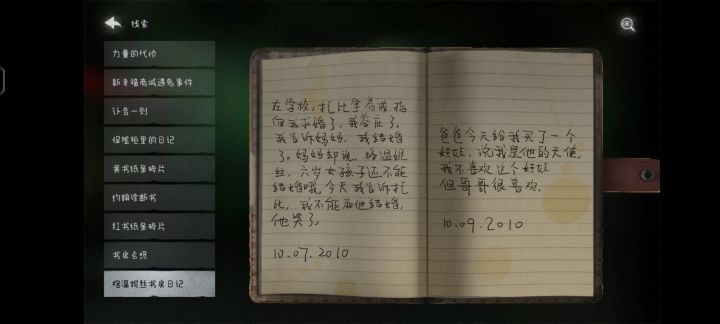 线索
力量的代价
新幸福商城遇鬼事件
讣告一则
保险柜里的日记
黄书纸条碎片
约翰诊断书
红书纸条碎片
书房合照
格温妮丝书房日记
在学校，托比拿着戒指
向我求婚了，我答应了。
我告诉妈妈，我结婚
了。妈妈却说，格温妮
丝，六岁女孩子还不能
结婚哦。今天我告诉托
比，我不能和他结婚，
他哭了。
10.07.2010
爸爸今天给我买了一个
娃娃，说我是他的天使，
我不喜欢这个娃娃
但哥哥很喜欢。
10.09.2010